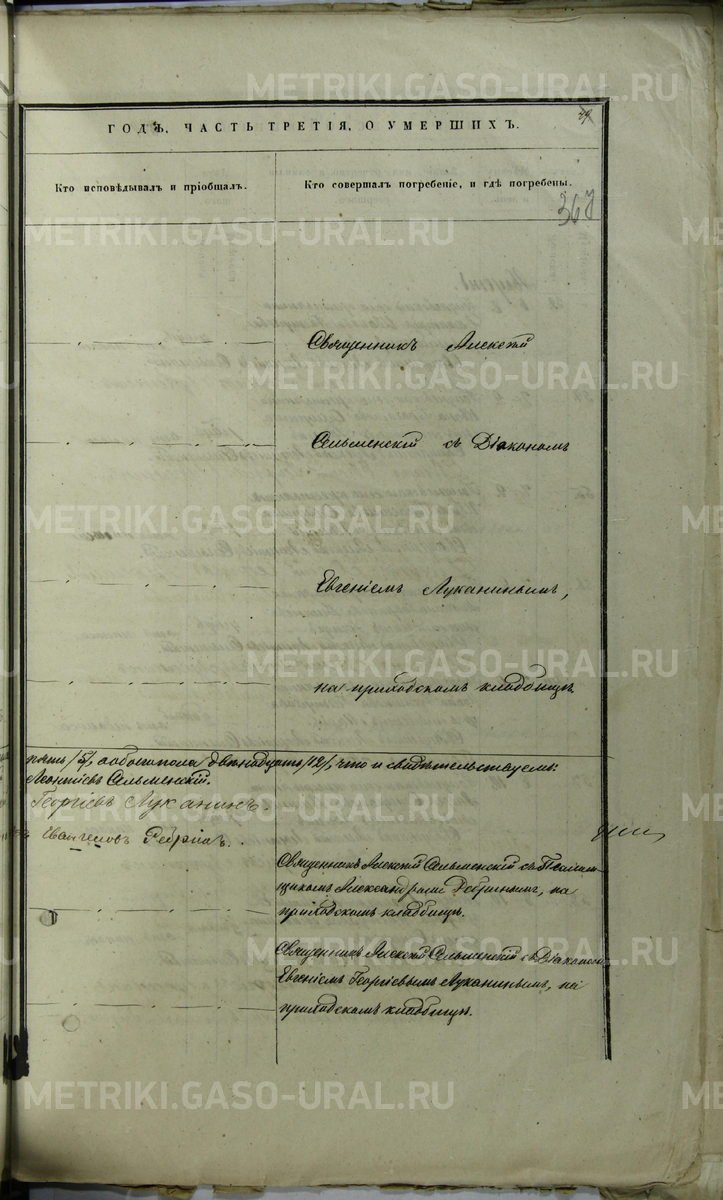 METRIKI.GASO-URAL.RU
ГОДѢ, ЧАСТЬ ТРЕТІЯ, О УМЕРШИХЪ.
Кто исповѣдывалъ и пріобщалъ.
Кто совершалъ погребеніе, и гдѣ погребены.
367
Священникъ Алексѣй
Сельменскій съ Діакономъ
Евгеніемъ Луканинымъ,
на приходскомъ кладбищѣ
пять /5/, обоего пола двѣнадцать /12/, что и свидѣтельствуемъ:
Леонтіевъ Сельменскій.
Георгіевъ Луканинъ.
Священникъ Алексѣй Сельменскій съ
Александромъ на
приходскомъ кладбищѣ.
Священникъ Алексѣй Сельменскій съ Діакономъ
Евгеніемъ Георгіевымъ Луканинымъ, на
приходскомъ кладбищѣ.